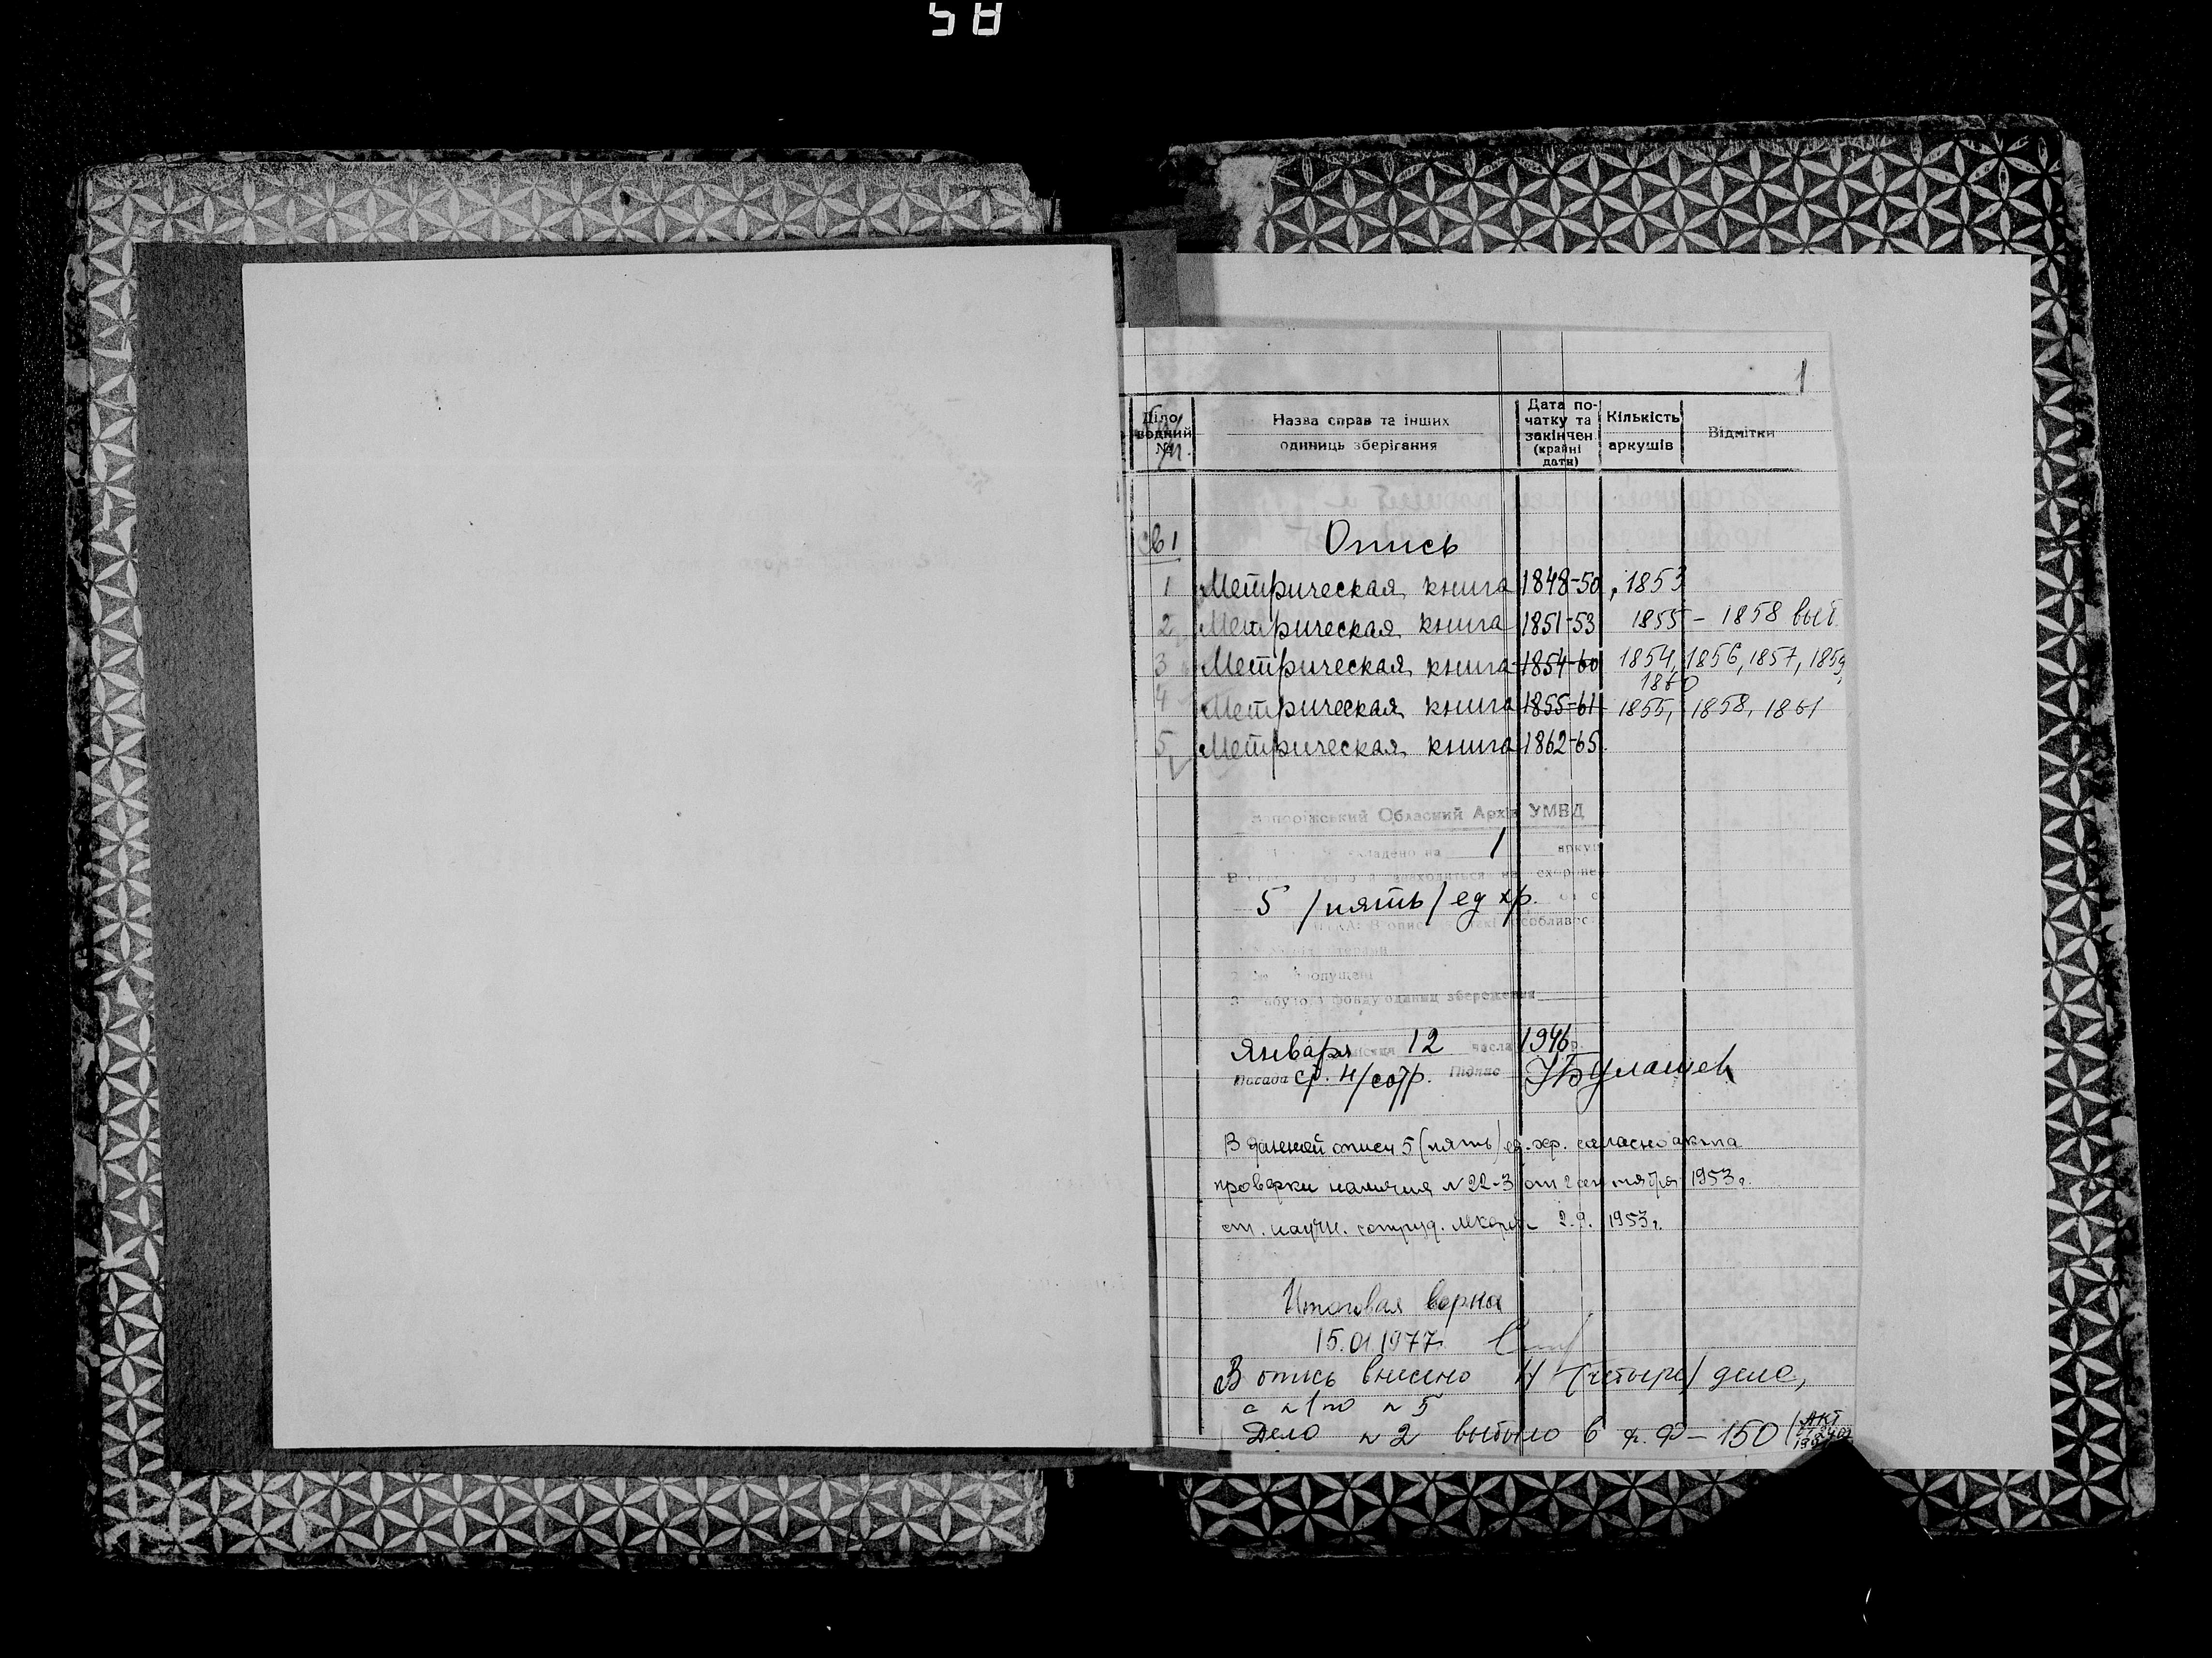 58
1
Діло-
водний
№
Назва справ та інших
одиниць зберігання
Дата по-
чатку та
закінчен.
(крайні
дати)
Кількість
аркушів
Відмітки
св 1
Опись
1 Метрическая книга 1848-50, 1853
2 Метрическая книга 1851-53 1855 - 1858 выб.
3 Метрическая книга 1854-60 1854, 1856, 1857, 1859,
1860
4 Метрическая книга 1855-61 1855, 1858, 1861
5 Метрическая книга 1862-65
Запоріжський Обласний Архів УМВД
складено на 1 аркуш
знаходиться на схороне
5 /пять/ ед хр.
В описі такі особливос
пропущені
3. фонду одиниц збереження
января місяця 12 числа 1946 р.
Посада ст. н/сотр. Підпис Булашев
В данной описи 5 (пять) ед. хр. согласно акта
проверки наличия N 22-3 от 2 сентября 1953 г.
ст. научн. сотруд. 2.9. 1953 г.
Итоговая верна
15.01.1977
В опись внесено 4 (четыре) дела,
с N 1 по N 5
Дело N 2 выбыло в ф. Ф-150 (Акт